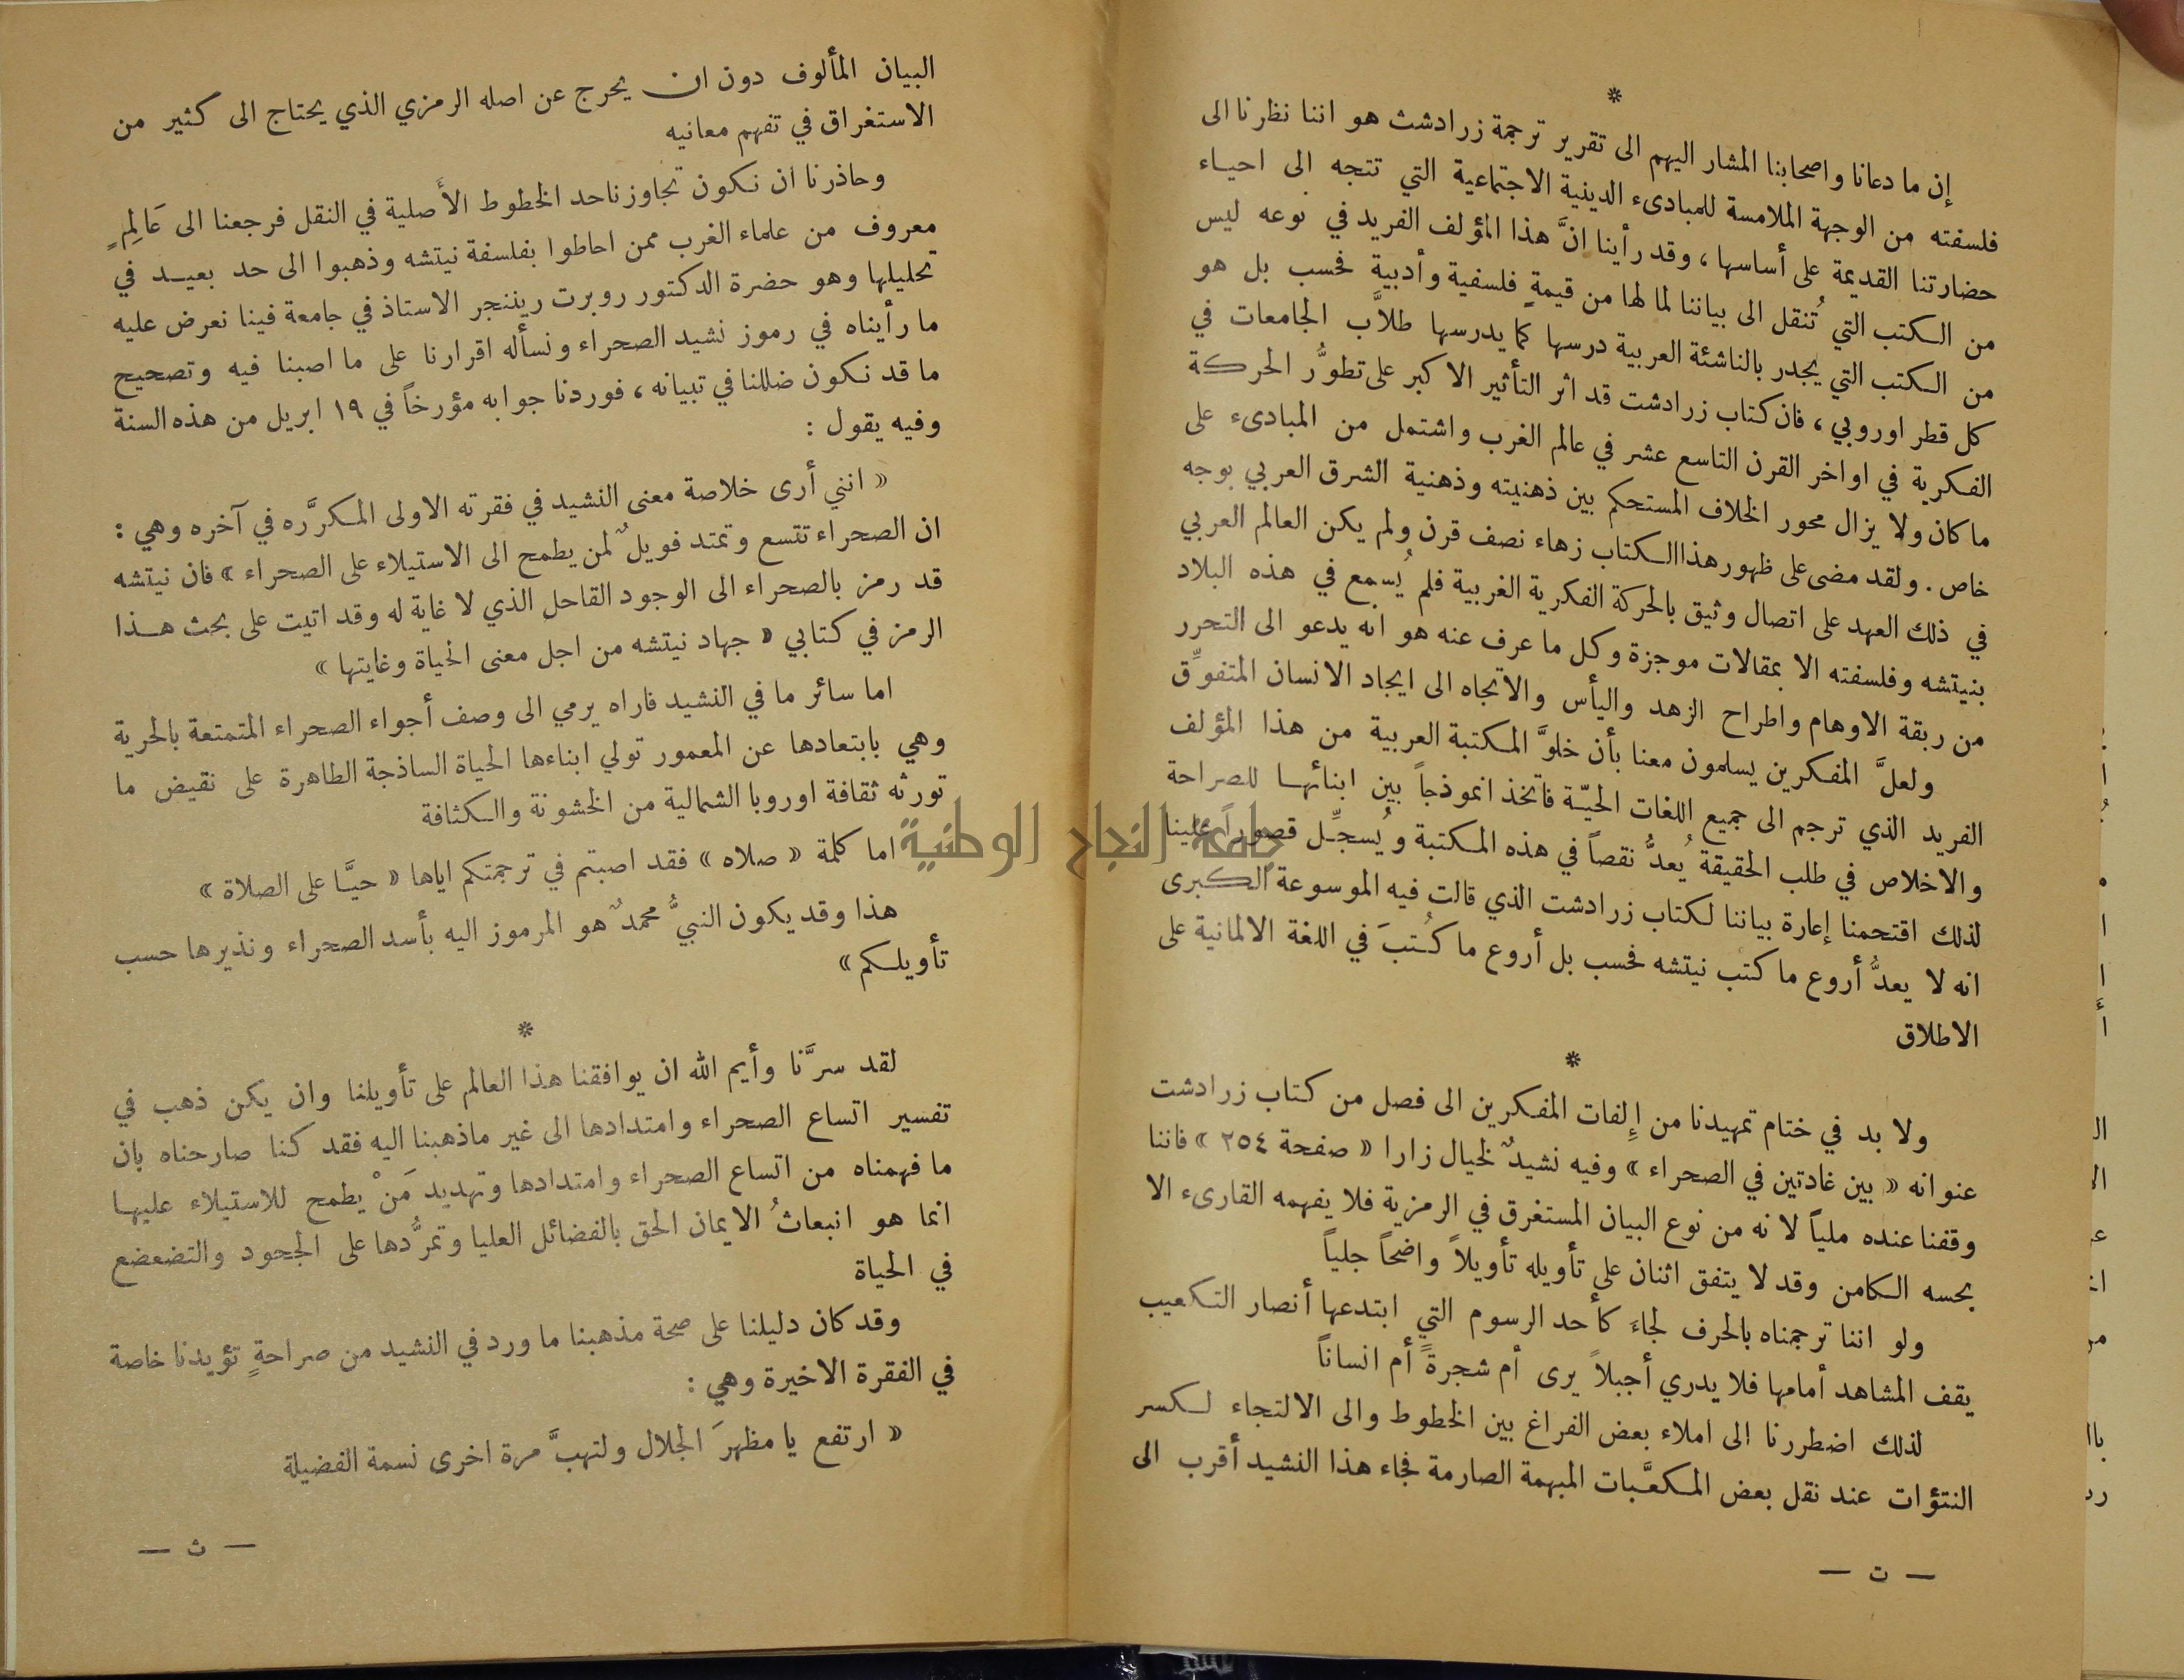 *
إن ما دعانا واصحابنا المشار اليهم الى تقرير ترجمة زرادشث هو اننا نظرنا الى
فلسفته من الوجهة الملامسة للمبادىء الدينية الاجتماعية التي تتجه الى احياء
حضارتنا القديمة على أساسها ، وقد رأينا انَّ هذا المؤلف الفريد في نوعه ليس
من الكتب التي تُنقل الى بياننا لما لها من قيمةٍ فلسفية وأدبية فحسب بل هو
من الكتب التي يجدر بالناشئة العربية درسها كما يدرسها طلاَّب الجامعات في
كل قطر اوروبي ، فان كتاب زرادشت قد اثر التأثير الاكبر على تطوُّر الحركة
الفكرية في اواخر القرن التاسع عشر في عالم الغرب واشتمل من المبادىء على
ما كان ولا يزال محور الخلاف المستحكم بين ذهنيته وذهنية الشرق العربي بوجه
خاص . ولقد مضى على ظهور هذا الكتاب زهاء نصف قرن ولم يكن العالم العربي
في ذلك العهد على اتصال وثيق بالحركة الفكرية الغربية فلم يُسمع في هذه البلاد
بنيتشه وفلسفته الا بمقالات موجزة وكل ما عرف عنه هو انه يدعو الى التحرر
من ربقة الاوهام واطراح الزهد واليأس والاتجاه الى ايجاد الانسان المتفوِّق
ولعلَّ المفكرين يسلمون معنا بأن خلوَّ المكتبة العربية من هذا المؤلف
الفريد الذي ترجم الى جميع اللغات الحيّة فاتخذ انموذجاً بين ابنائها للصراحة
والاخلاص في طلب الحقيقة يُعدُّ نقصاً في هذه المكتبة ويُسجِّل قصوراً علينا
لذلك اقتحمنا إعارة بياننا لكتاب زرادشت الذي قالت فيه الموسوعة الكبرى
انه لا يعدُّ أروع ما كتب نيتشه فحسب بل أروع ما كُتبَ في اللغة الالمانية على
الاطلاق
*
ولا بد في ختام تمهيدنا من إِلفات المفكرين الى فصل من كتاب زرادشت
عنوانه « بين غادتين في الصحراء » وفيه نشيدٌ لخيال زارا « صفحة ٢٥٤ » فاننا
وقفنا عنده ملياً لانه من نوع البيان المستغرق في الرمزية فلا يفهمه القارىء الا
بحسه الكامن وقد لا يتفق اثنان على تأويله تأويلاً واضحاً جلياً
ولو اننا ترجمناه بالحرف لجاءَ كأحد الرسوم التي ابتدعها أنصار التكعيب
يقف المشاهد أمامها فلا يدري أجبلاً يرى أم شجرةً أم انساناً
لذلك اضطررنا الى املاء بعض الفراغ بين الخطوط والى الالتجاء لكسر
النتؤات عند نقل بعض المكعَّبات المبهمة الصارمة فجاء هذا النشيد أقرب الى
— ت —
البيان المألوف دون ان يخرج عن اصله الرمزي الذي يحتاج الى كثير من
الاستغراق في تفهم معانيه
وحاذرنا ان نكون تجاوزنا حد الخطوط الأَصلية في النقل فرجعنا الى عَالِمٍ
معروف من علماء الغرب ممن احاطوا بفلسفة نيتشه وذهبوا الى حد بعيد في
تحليلها وهو حضرة الدكتور روبرت ريننجر الاستاذ في جامعة فينا نعرض عليه
ما رأيناه في رموز نشيد الصحراء ونسأله اقرارنا على ما اصبنا فيه وتصحيح
ما قد نكون ضللنا في تبيانه ، فوردنا جوابه مؤرخاً في ١٩ ابريل من هذه السنة
وفيه يقول :
« انني أرى خلاصة معنى النشيد في فقرته الاولى المكرَّره في آخره وهي :
ان الصحراء تتسع وتمتد فويلٌ لمن يطمح الى الاستيلاء على الصحراء » فان نيتشه
قد رمز بالصحراء الى الوجود القاحل الذي لا غاية له وقد اتيت على بحث هذا
الرمز في كتابي « جهاد نيتشه من اجل معنى الحياة وغايتها »
اما سائر ما في النشيد فاراه يرمي الى وصف أجواء الصحراء المتمتعة بالحرية
وهي بابتعادها عن المعمور تولي ابناءها الحياة الساذجة الطاهرة على نقيض ما
تورثه ثقافة اوروبا الشمالية من الخشونة والكثافة
اما كلمة « صلاه » فقد اصبتم في ترجمتكم اياها « حيَّا على الصلاة »
هذا وقد يكون النبيُّ محمدٌ هو المرموز اليه بأسد الصحراء ونذيرها حسب
تأويلكم »
*
لقد سرَّنا وأيم الله ان يوافقنا هذا العالم على تأويلنا وان يكن ذهب في
تفسير اتساع الصحراء وامتدادها الى غير ما ذهبنا اليه فقد كنا صارحناه بان
ما فهمناه من اتساع الصحراء وامتدادها وتهديد مَنْ يطمح للاستيلاء عليها
انما هو انبعاثُ الايمان الحق بالفضائل العليا وتمرُّدها على الجحود والتضعضع
في الحياة
وقد كان دليلنا على صحة مذهبنا ما ورد في النشيد من صراحةٍ تؤيدنا خاصة
في الفقرة الاخيرة وهي :
« ارتفع يا مظهرَ الجلال ولتهبَّ مرة اخرى نسمة الفضيلة
— ث —
جامعة النجاح الوطنية